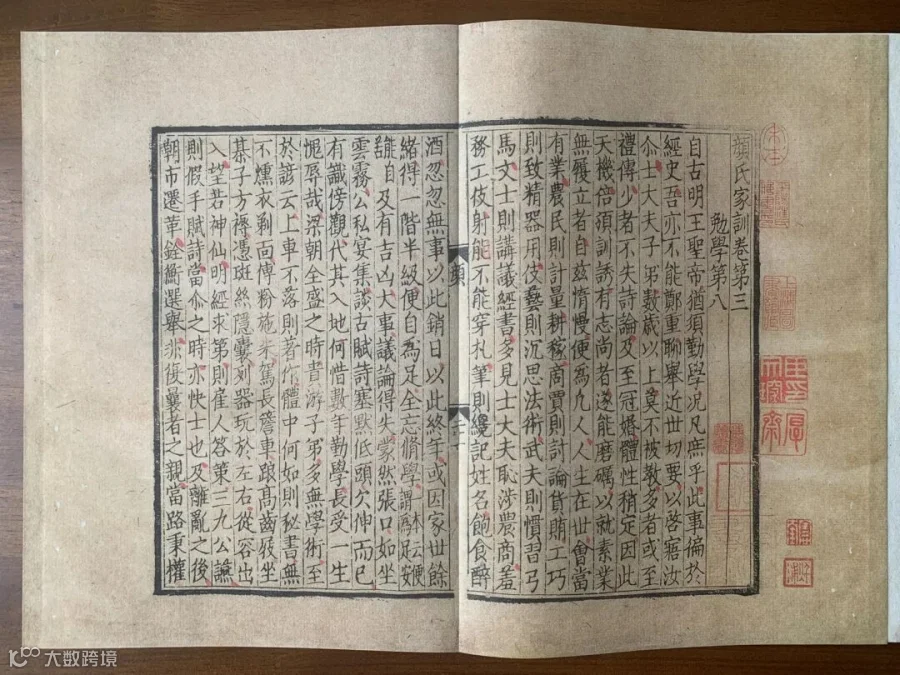 顔氏家訓卷第三
勉學第八
自古明王聖帝猶須勤學况庶乎此事徧於
經史吾亦不能鄭重聊舉近世切要以啓寤汝
尒士大夫子弟數歲以上莫不被教多者或至
禮傳少者不失詩論及至冠婚體性稍定因此
天機倍須訓誘有志尚者遂能磨礪以就素業
無履立者自兹惰慢便為凡人人生在世㑹當
有業農民則計量耕稼商賈則討論貨賄工巧
則致精器用伎藝則沉思法術武夫則慣習弓
馬文士則講議經書多見士大夫恥涉農商羞
務工伎射能不能穿札筆則纔記姓名飽食醉
顔
三
酒忽忽無事以此銷日以此終年或因家世餘
緒得一階半級便自為足全忘脩學
及有吉凶大事議論得失蒙然張口如坐
雲霧公私宴集談古賦詩塞默低頭欠伸而已
有識傍觀代其入地何惜數年勤學長受一生
愧辱哉梁朝全盛之時貴游子弟多無學術至
於諺云上車不落則著作體中何如則秘書無
不燻衣剃面傅粉施朱駕長簷車跟髙齒屐坐
棊子方褥憑斑絲隱囊列器玩於左右從容出
入望若神仙明經求第則雇人答策三九公讌
則假手賦詩當尒之時亦快士也及離亂之後
朝市遷革銓衡選舉非復曩者之親當路秉權
大数跨境